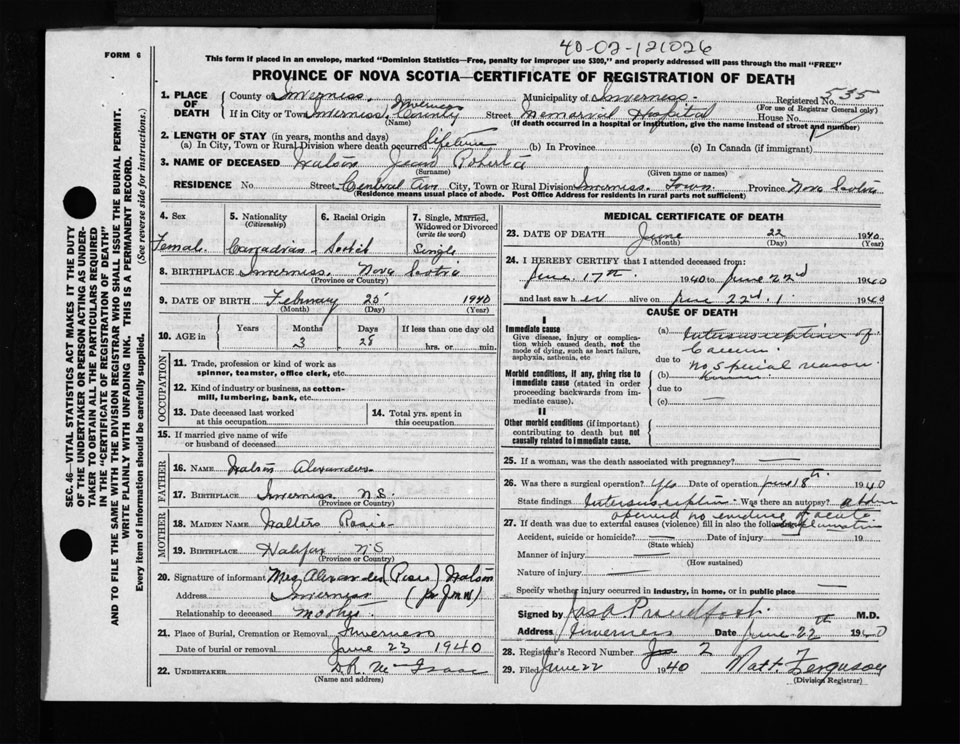 40-02-121026
FORM 6
This form if placed in an envelope, marked "Dominion Statistics—Free, penalty for improper use $300," and properly addressed will pass through the mail "FREE"
PROVINCE OF NOVA SCOTIA—CERTIFICATE OF REGISTRATION OF DEATH
SEC. 46—VITAL STATISTICS ACT MAKES IT THE DUTY
OF THE UNDERTAKER OR PERSON ACTING AS UNDER-
TAKER TO OBTAIN ALL THE PARTICULARS REQUIRED
IN THE "CERTIFICATE OF REGISTRATION OF DEATH"
AND TO FILE THE SAME WITH THE DIVISION REGISTRAR WHO SHALL ISSUE THE BURIAL PERMIT.
WRITE PLAINLY WITH UNFADING INK. THIS IS A PERMANENT RECORD.
Every item of information should be carefully supplied. (See reverse side for instructions.)
1. PLACE OF DEATH
County of Inverness. Municipality of Inverness. Registered No. 535
(For use of Registrar General only)
If in City or Town Inverness. Inverness County Street Memorial Hospital House No.
(Name) (If death occurred in a hospital or institution, give the name instead of street and number)
2. LENGTH OF STAY (in years, months and days)
(a) In City, Town or Rural Division where death occurred lifetime (b) In Province (c) In Canada (if immigrant)
3. NAME OF DECEASED Watson Jean Roberta
(Surname) (Given name or names)
RESIDENCE No. Street Central Ave City, Town or Rural Division Inverness. Town Province Nova Scotia
(Residence means usual place of abode. Post Office Address for residents in rural parts not sufficient)
4. Sex 5. Nationality 6. Racial Origin 7. Single, Married,
(Citizenship) Widowed or Divorced
(write the word)
Female. Canadian - Scotch Single
8. BIRTHPLACE Inverness. Nova Scotia
(Province or Country)
9. DATE OF BIRTH February 25 1940
(Month) (Day) (Year)
10. AGE in Years Months Days If less than one day old
3 28 hrs. or min.
OCCUPATION
11. Trade, profession or kind of work as
spinner, teamster, office clerk, etc.
12. Kind of industry or business, as cotton-
mill, lumbering, bank, etc.
13. Date deceased last worked
at this occupation
14. Total yrs. spent in
this occupation
15. If married give name of wife
or husband of deceased
FATHER
16. NAME Watson Alexander
17. BIRTHPLACE Inverness N.S.
(Province or Country)
MOTHER
18. MAIDEN NAME Walters Rosie
19. BIRTHPLACE Halifax N.S
(Province or Country)
20. Signature of informant Mrs Alexander (Rosie) Watson
Address Inverness
Relationship to deceased Mother
21. Place of Burial, Cremation or Removal Inverness
Date of burial or removal June 23 1940
22. UNDERTAKER D.R. McIsaac
(Name and address)
MEDICAL CERTIFICATE OF DEATH
23. DATE OF DEATH June 22 1940
(Month) (Day) (Year)
24. I HEREBY CERTIFY that I attended deceased from:
June 17th 1940 to June 22nd 1940
and last saw her alive on June 22nd 1940
CAUSE OF DEATH
I
Immediate cause
Give disease, injury or complica-
tion which caused death, not the
mode of dying, such as heart failure,
asphyxia, asthenia, etc
(a) Intersusception of
Caecum.
due to
Morbid conditions, if any, giving rise to
immediate cause (stated in order
proceeding backwards from im-
mediate cause).
(b) No special reason
Known
due to
(c) —
II
Other morbid conditions (if important)
contributing to death but not
causally related to immediate cause.
25. If a woman, was the death associated with pregnancy? —
26. Was there a surgical operation? yes Date of operation June 18th 1940
State findings Intersusception Was there an autopsy? Abdom
opened no evidence of acute
inflamation
27. If death was due to external causes (violence) fill in also the following:
Accident, suicide or homicide? — Date of injury 19
(State which)
Manner of injury —
(How sustained)
Nature of injury —
Specify whether injury occurred in industry, in home, or in public place —
Signed by Jas A. Proudfoot. M.D.
Address Inverness Date June 22th 1940
28. Registrar's Record Number 2
29. Filed June 22 1940 Matt Ferguson
(Division Registrar)